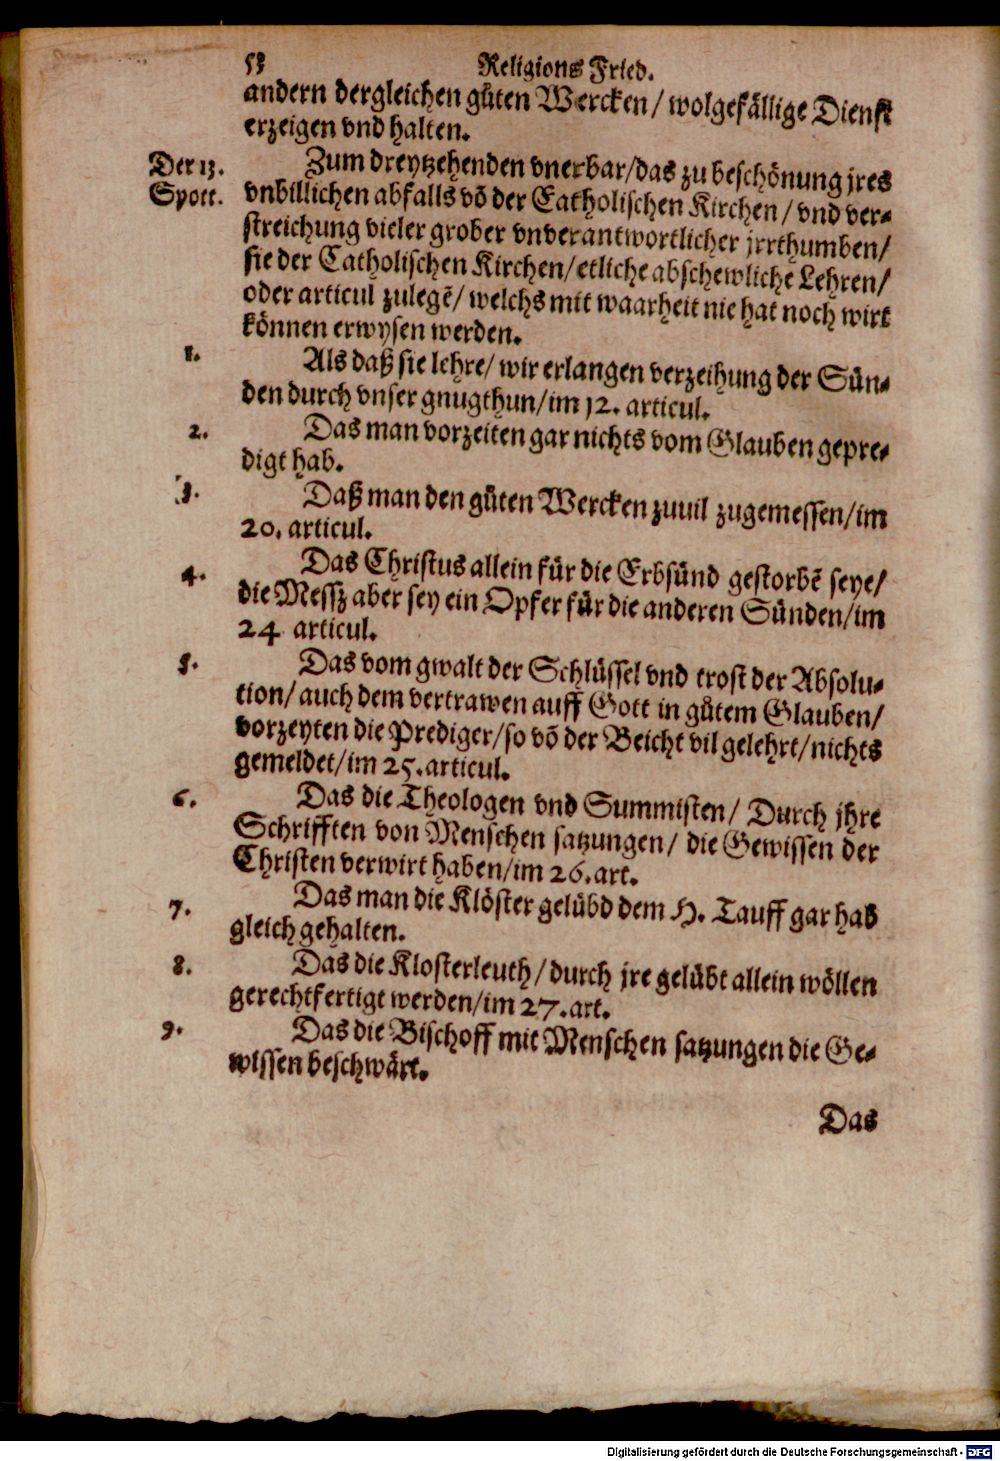 53 Religions Fried.
andern dergleichen gůten Wercken / wolgefällige Dienst
erzeigen vnd halten.
Der 13. Zum dreytzehenden vnerbar/das zu beschönung jres
Spott. vnbillichen abfalls võ der Catholischen Kirchen / vnd ver-
streichung vieler grober vnverantwortlicher jrrthumben/
sie der Catholischen Kirchen/etliche abschewlichẽ Lehren/
oder articul zulegẽ/ welchs mit waarheit nie hat noch wirt
können erwysen werden.
1. Als daß sie lehre/ wir erlangen verzeihung der Sün-
den durch vnser gnugthun/im 12. articul.
2. Das man vorzeiten gar nichts vom Glauben gepre-
digt hab.
3. Daß man den gůten Wercken zuuil zugemessen/im
20. articul.
4. Das Christus allein für die Erbsünd gestorbẽ seye/
die Messz aber sey ein Opfer für die anderen Sünden/im
24 articul.
5. Das vom gwalt der Schlüssel vnd trost der Absolu-
tion/ auch dem vertrawen auff Gott in gůtem Glauben/
vorzeyten die Prediger/so võ der Beicht vil gelehrt/nichts
gemeldet/im 25.articul.
6. Das die Theologen vnd Summisten/ Durch jhre
Schrifften von Menschen satzungen/ die Gewissen der
Christen verwirt haben/im 26.art.
7. Das man die Klöster gelübd dem H. Tauff gar hab
gleich gehalten.
8. Das die Klosterleuth/durch jre gelübt allein wöllen
gerechtfertigt werden/im 27.art.
9. Das die Bischoff mit Menschen satzungen die Ge-
wissen beschwärt.
Das
Digitalisierung gefördert durch die Deutsche Forschungsgemeinschaft - DFG